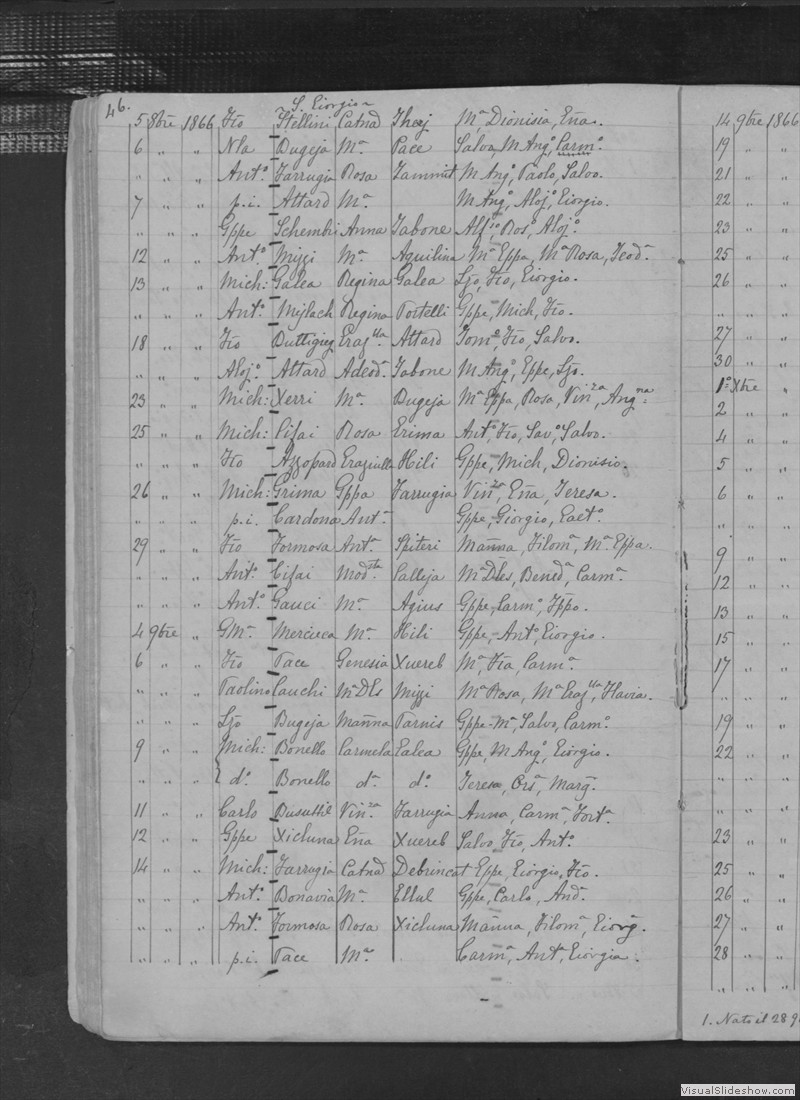 46.
S. Giorgio
5 8bre 1866 Fco Stellini Catnа Theej Mª Dionisia, Eña.
6 „ „ Nla Bugeja Mª Pace Salva, M Angº, Carmº.
„ „ „ Antº Farrugia Rosa Zammit M Angº, Paolo, Salvo.
7 „ „ p.i. Attard Mª M Angº, Alojº, Giorgio.
„ „ „ Gppe Schembri Anna Tabone Alfso Rosº, Alojº.
12 „ „ Antº Mizzi Mª Aquilina Mª Gppa, Mª Rosa, Teodª
13 „ „ Mich: Galea Regina Galea Ljo, Fco, Giorgio.
„ „ „ Antº Mizlach Regina Portelli Gppe, Mich, Fco.
18 „ „ Fco Buttigieg Grazlla Attard Tomº, Fco, Salvo.
„ „ „ Alojº Attard Adeodª Tabone M Angº, Gppe, Ljo.
23 „ „ Mich: Xerri Mª Bugeja Mª Gppa, Rosa, Vinza, Angna
25 „ „ Mich: Cifai Rosa Grima Antº, Fco, Savº, Salvo.
„ „ „ Fco Azzopard Graziulla Hili Gppe, Mich, Dionisio.
26 „ „ Mich: Grima Gppa Farrugia Vinza, Eña, Teresa.
„ „ „ p.i. Cardona Antª Gppe, Giorgio, Gaetº.
29 „ „ Fco Formosa Antª Spiteri Mañna, Filomª, Mª Gppa.
„ „ „ Antº Cifai Modsta Calleja Mª Dles, Benedª, Carmª.
„ „ „ Antº Gauci Mª Agius Gppe, Carmº, Fppo.
4 9bre „ GMª Mercieca Mª Hili Gppe, Antº, Giorgio.
6 „ „ Fco Pace Genesia Xuereb Mª, Fca, Carmª
„ „ „ Paolino Cauchi Mª Dls Mizzi Mª Rosa, Mª Grazlla, Flavia.
„ „ „ Ljo Bugeja Mañna Farnis Gppe-Mª, Salvo, Carmº.
9 „ „ Mich: Bonello Carmela Galea Gppe, M Angº, Giorgio.
„ „ „ dº. Bonello dª. dº. Teresa, Orsª, Marg.
11 „ „ Carlo Busuttil Vinza Farrugia Anna, Carmª, Fortª.
12 „ „ Gppe Xicluna Eña Xuereb Salvo, Fco, Antº.
14 „ „ Mich: Farrugia Catnа Debrincat Gppe, Giorgio, Fco.
„ „ „ Antº Bonavia Mª Ellul Gppe, Carlo, Andª.
„ „ „ Antº Formosa Rosa Xicluna Mañna, Filomª, Giorg.
„ „ „ p.i. Pace Mª Carmª, Antª, Giorgia.
14 9bre 1866
19 „ „
21 „ „
22 „ „
23 „ „
25 „ „
26 „ „
„ „ „
27 „ „
30 „ „
1º Xbre „
2 „ „
4 „ „
5 „ „
6 „ „
„ „ „
9 „ „
12 „ „
13 „ „
15 „ „
17 „ „
„ „ „
19 „ „
22 „ „
„ „ „
23 „ „
25 „ „
26 „ „
27 „ „
28 „ „
„ „ „
1. Nato il 28 9
VisualSlideshow.com